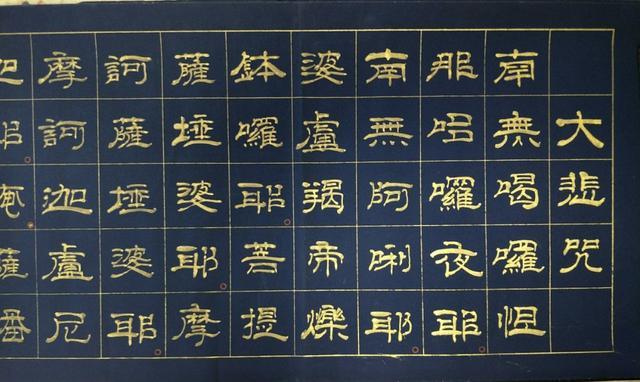 大悲咒
南無喝囉怛
那哆囉夜耶
南無阿唎耶
婆盧羯帝爍
缽囉耶菩提
薩埵婆耶摩
訶薩埵婆耶
摩訶迦盧尼